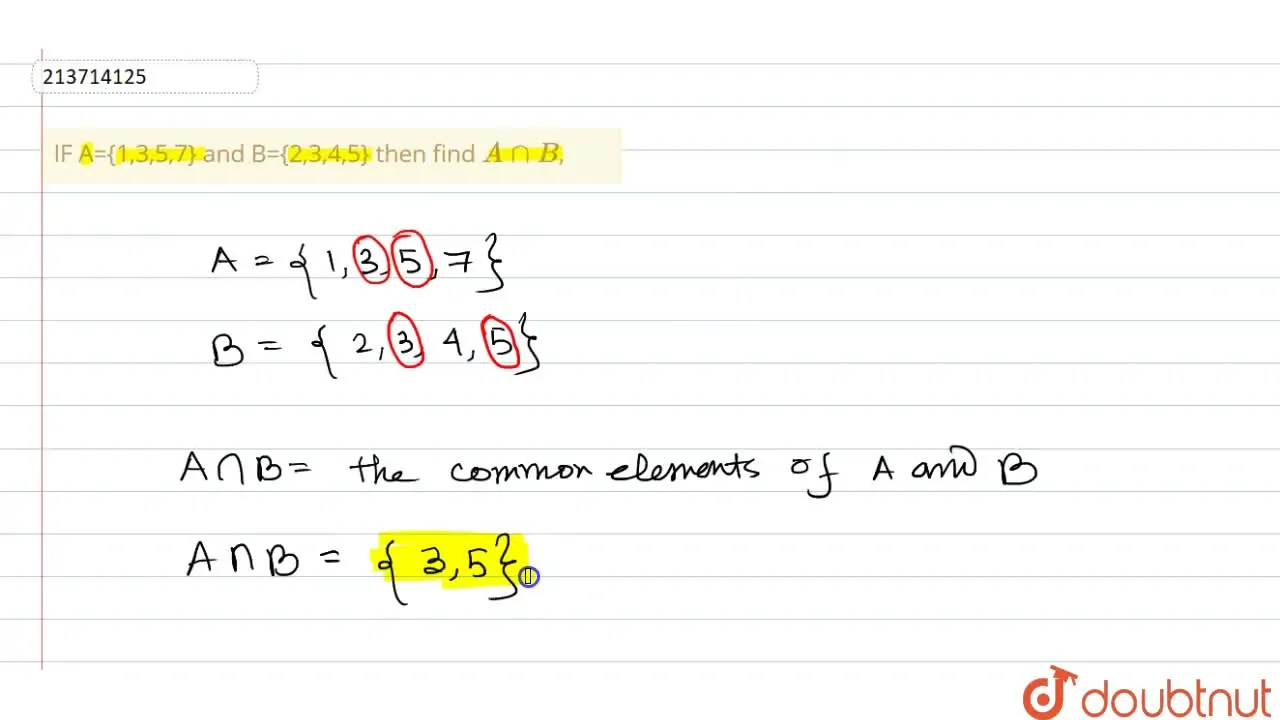 213714125
IF A={1,3,5,7} and B={2,3,4,5} then find A ∩ B,
A = {1, 3, 5, 7}
B = { 2, 3, 4, 5}
A∩B = the common elements of A and B
A∩B = { 3, 5}
doubtnut